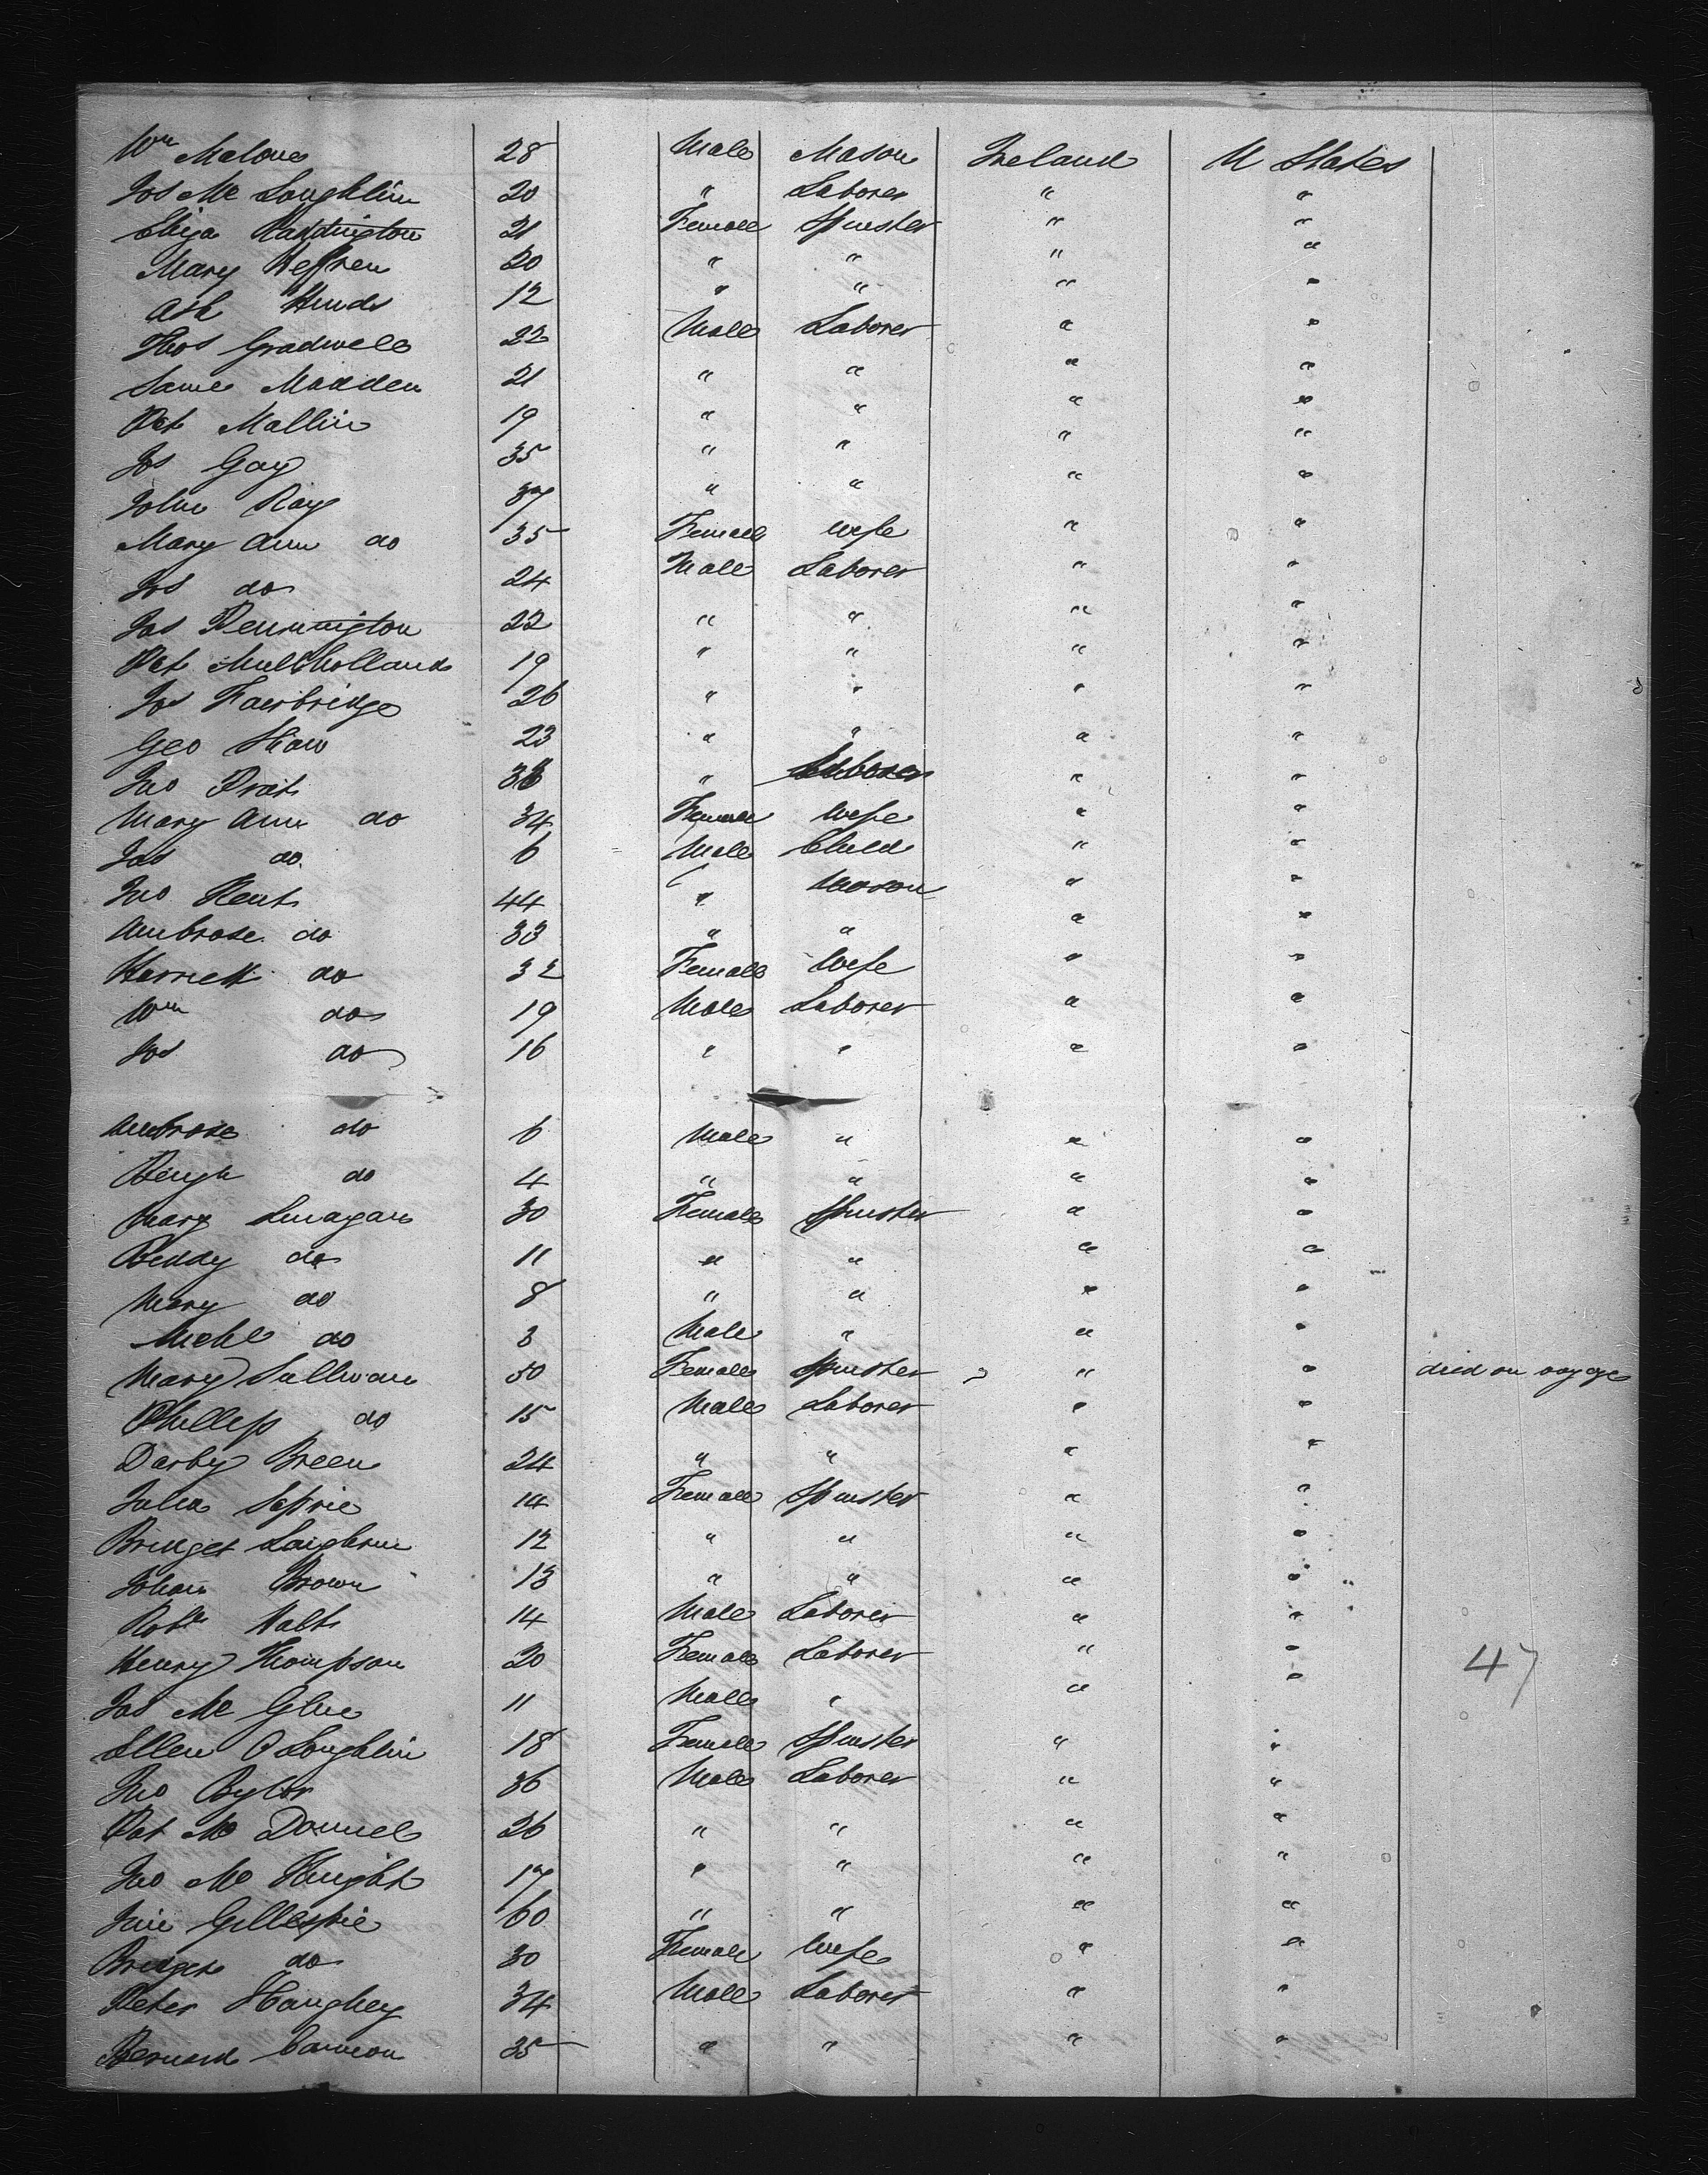 Wm Malone 28 Male Mason Ireland U States
Jos Mc Loughlin 20 " Laborer " "
Eliza Paddington 21 Female Spinster " "
Mary Heffren 20 " " " "
Ath Hinds 12 " " " "
Thos Gradwell 22 Male Laborer " "
James Madden 21 " " " "
Pat Mallin 19 " " " "
Js Gay 35 " " " "
John Ray 37 " " " "
Mary Ann do 35 Female Wife " "
Jos do 24 Male Laborer " "
Jas Pennington 22 " " " "
Pat Mullholland 19 " " " "
Jos Fairbridge 26 " " " "
Geo Shaw 23 " " " "
Jno Prat " Laborer " "
Mary Ann do 34 Female Wife " "
Jas do 6 Male Child " "
Jno Kent 44 " Mason " "
Ambrose do 33 " " " "
Harriett do 32 Female Wife " "
Wm do 19 Male Laborer " "
Jos do 16 " " " "
Ambrose do 6 Male " " "
do 4 " " " "
Mary Linagan 30 Female Spinster " "
Biddy do 11 " " " "
Mary do 8 " " " "
Michl do 3 Male " " "
Mary Sullivan 50 Female Spinster " " died on voyage
Phillip do 15 Male Laborer " "
Darby Breen 24 " " " "
Julia 14 Female Spinster " "
Bridget 12 " " " "
Johan Brown 13 " " " "
Robt Walt 14 Male Laborer " "
Henry Thompson 20 Female Laborer " " 47
Jas Mc Glue 11 Male " " "
Ellen O Loughlin 18 Female Spinster " "
Jno 36 Male Laborer " "
Pat Mc Donnel 26 " " " "
Jno Mc Knight 17 " " " "
Gillespie 60 " " " "
Bridget do 30 Female Wife " "
Peter Haughey 34 Male Laborer " "
Bernard Cannon 35 " " " "